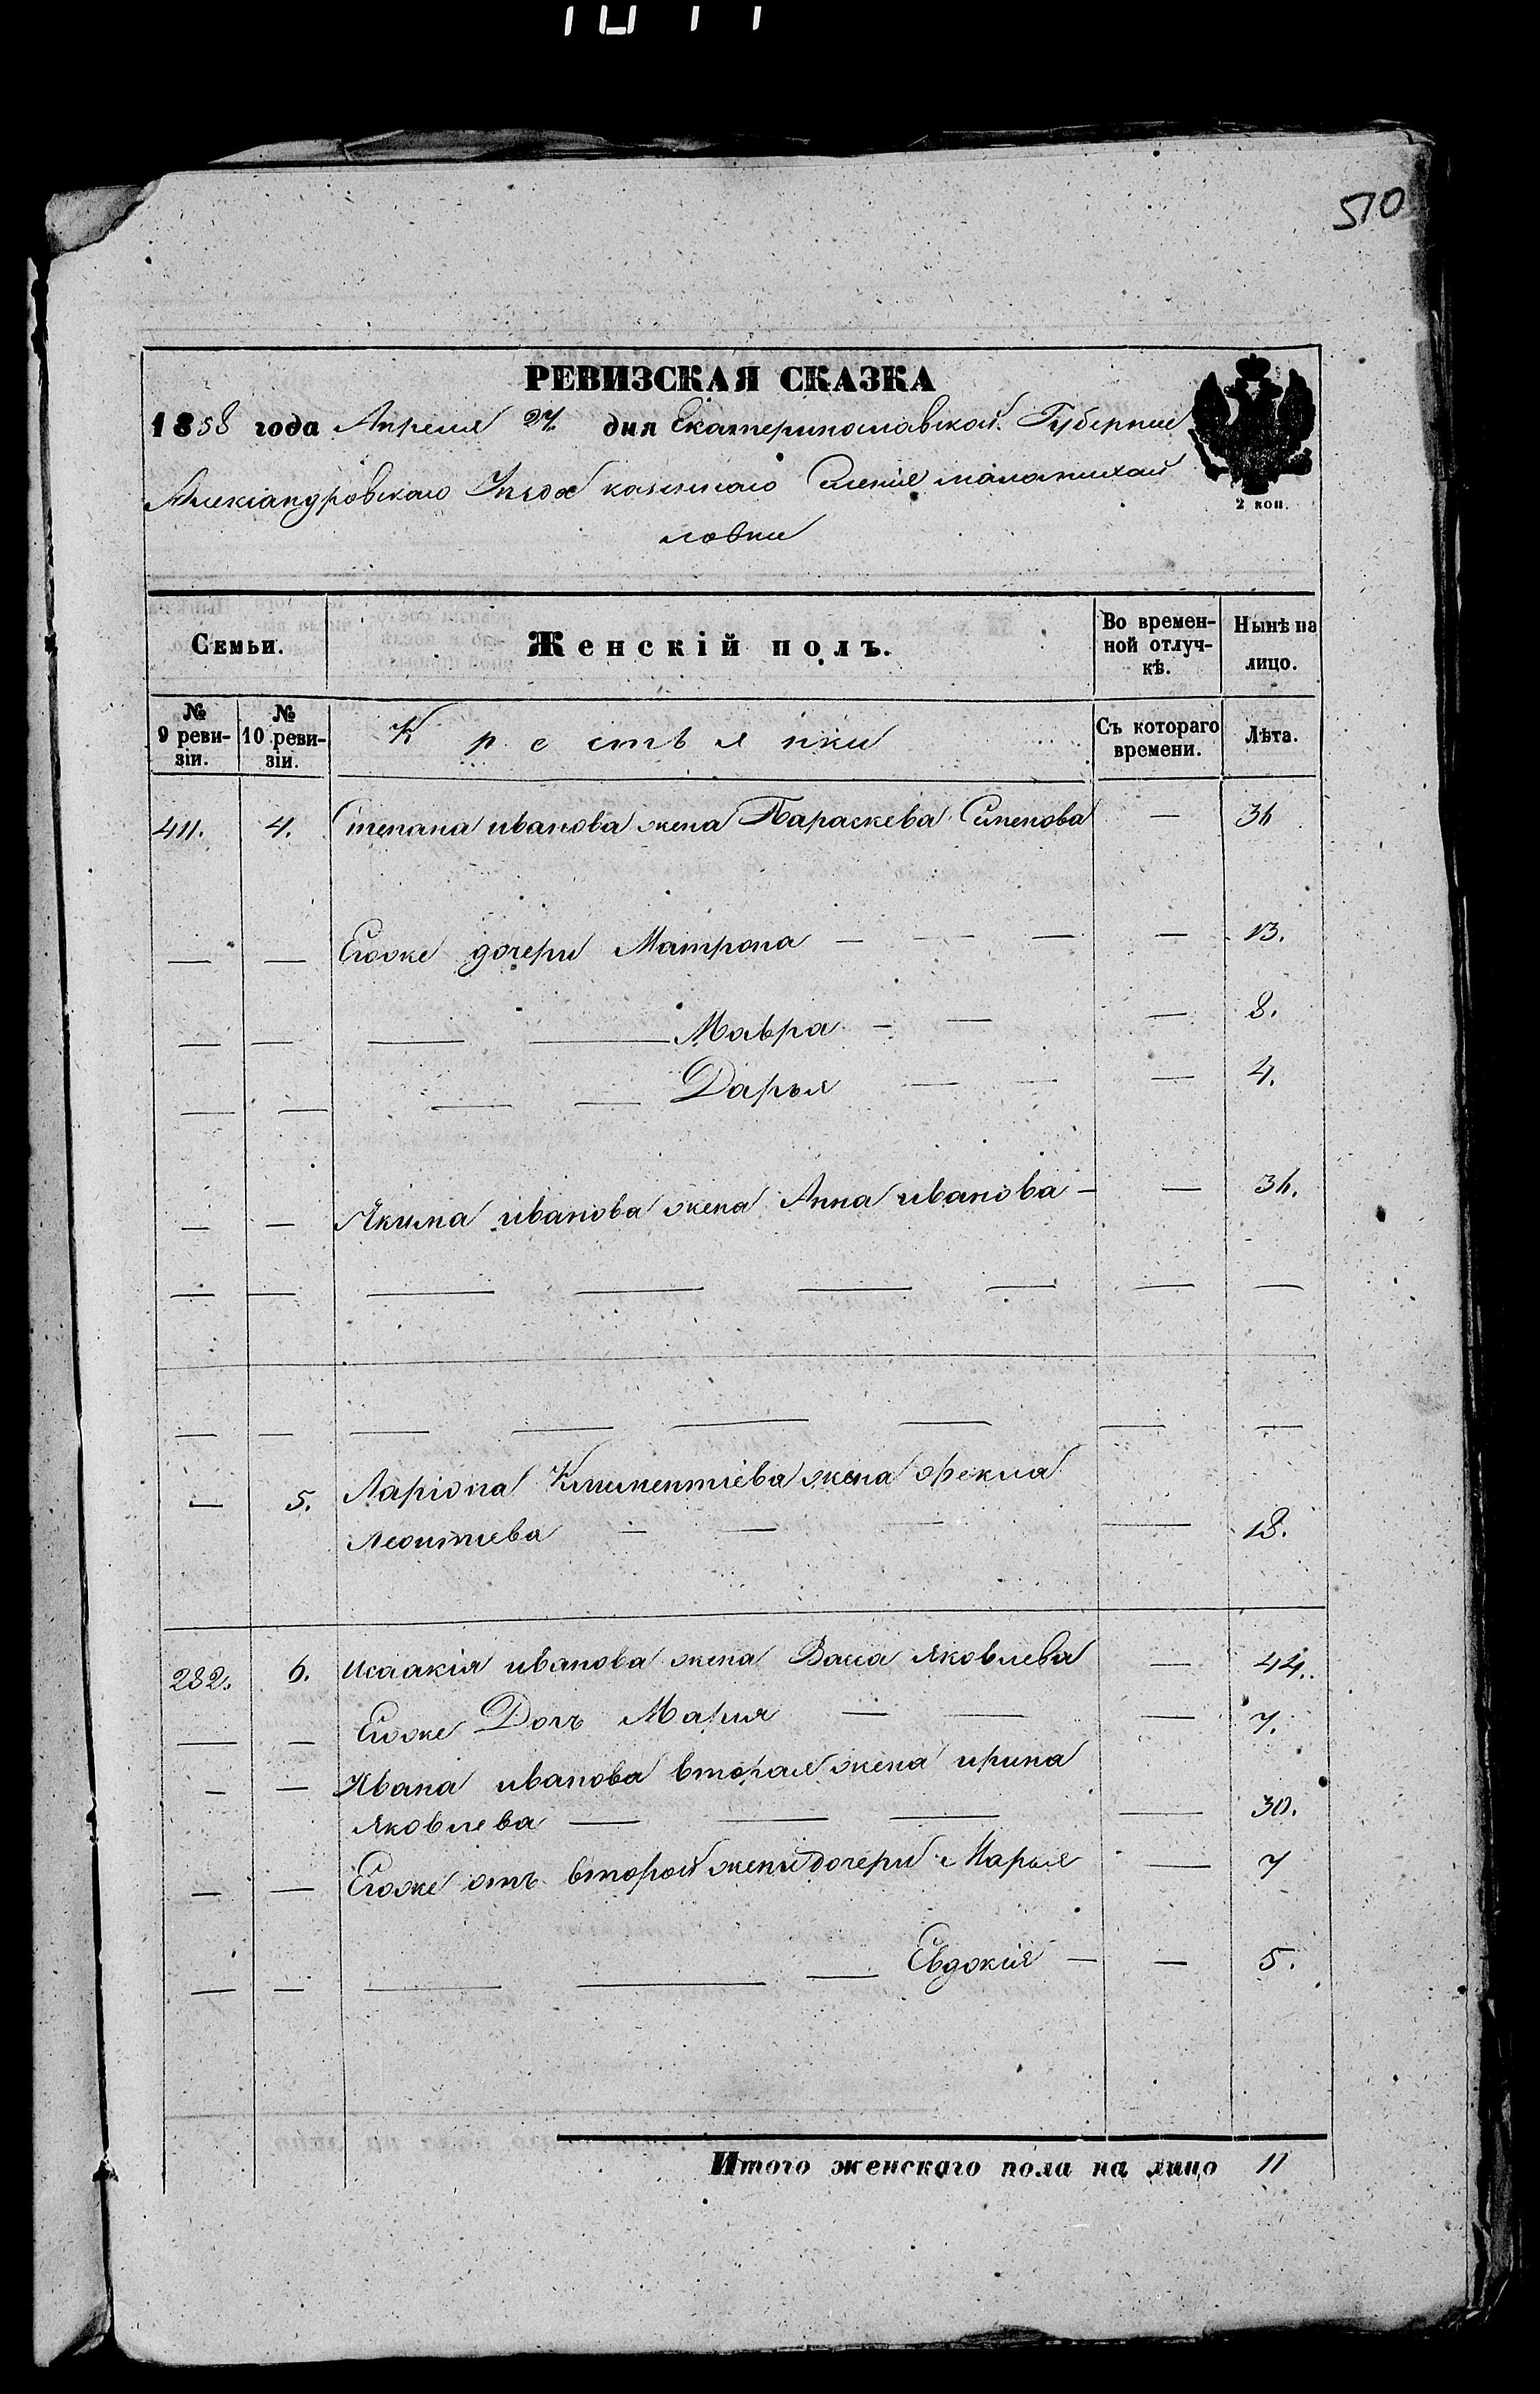 510
РЕВИЗСКАЯ СКАЗКА
1858 года Апреля 27. дня Екатеринославской Губернии
Александровскаго Уезда казеннаго Селения маламихай
ловки
2 коп.
Семьи.
Женскій полъ.
Во времен-
ной отлуч-
кѣ.
Нынѣ на
лицо.
№
9 реви-
зіи.
№
10 реви-
зіи.
Крестьянки
Съ котораго
времени.
Лѣта.
411. 4. Степана иванова жена Параскева Сименова — 36
— — Егоже дочери Матрона — — — — 13.
— — — — Мавра — — — 8.
— — — — Дарья — — — 4.
— — Якима иванова жена Анна иванова — — 36.
— — — — — — — —
— — — — — — — —
— 5. Ларіона Климентіева жена Фекла
Леонтиева — — — — 18.
282. 6. Исаакія иванова жена Васса Яковлева — 44.
— — Егоже Дочь Мария — — — 7.
— — Ивана иванова вторая жена ирина
Яковлева — — — — 30.
— — Егоже отъ второй жены дочери Марья — 7
— — — — — Евдокия — — 5.
Итого женскаго пола на лицо 11